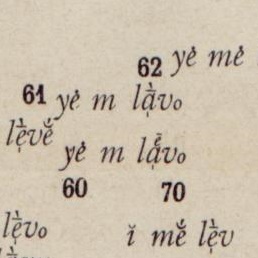 62 yė mė
61 yė m lạ̀vo
lẹ̀vé̆
yė m lặ́vo
60 70
lẹ̀vo ĭ mé̆ lẹ̀v